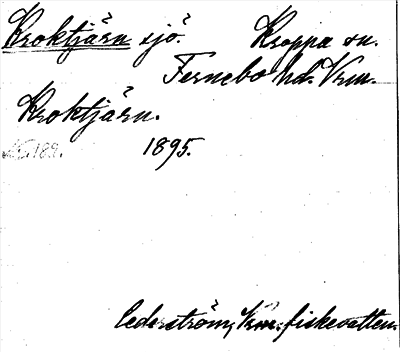 Kroktjärn sjö. Kroppa sn.
Fernebo hd. Vrm.
Kroktjärn.
1895.
Cederström, Vrm. fiskevatten.